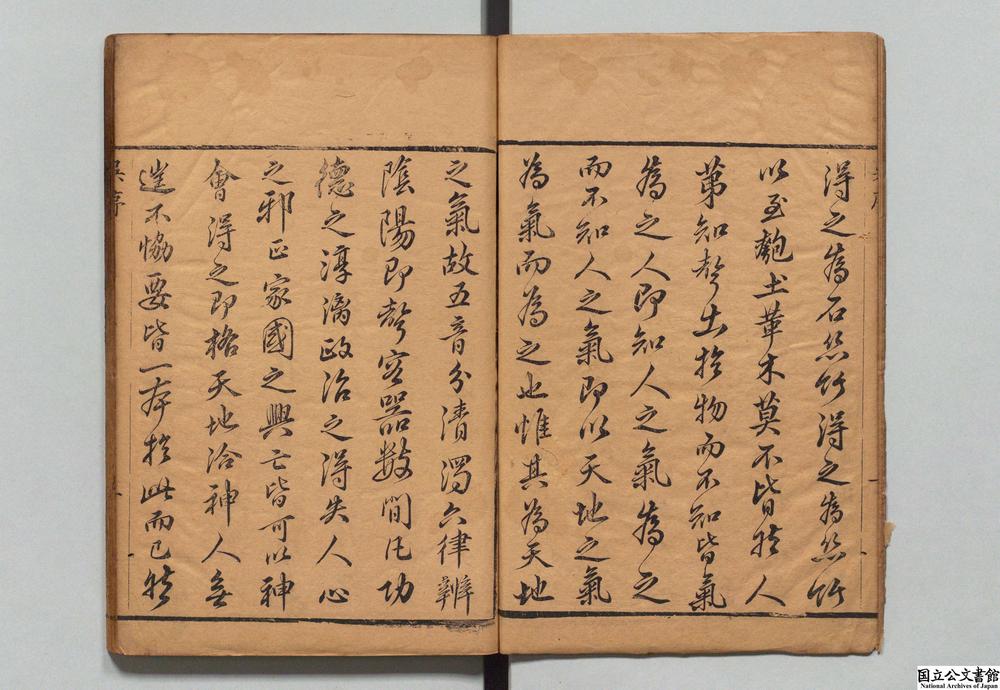 得之為石絲竹得之為絲竹
以至匏土革木莫不皆然人
第知聲出於物而不知皆氣
為之人即知人之氣為之
而不知人之氣即以天地之氣
為氣而為之也惟其為天地
之氣故五音分清濁六律辨
陰陽即聲容器數間凡功
德之淳漓政治之得失人心
之邪正家國之興亡皆可以神
會得之即格天地洽神人無
遑不恊要皆一本於此而已然
吳序
国立公文書館
National Archives of Japan